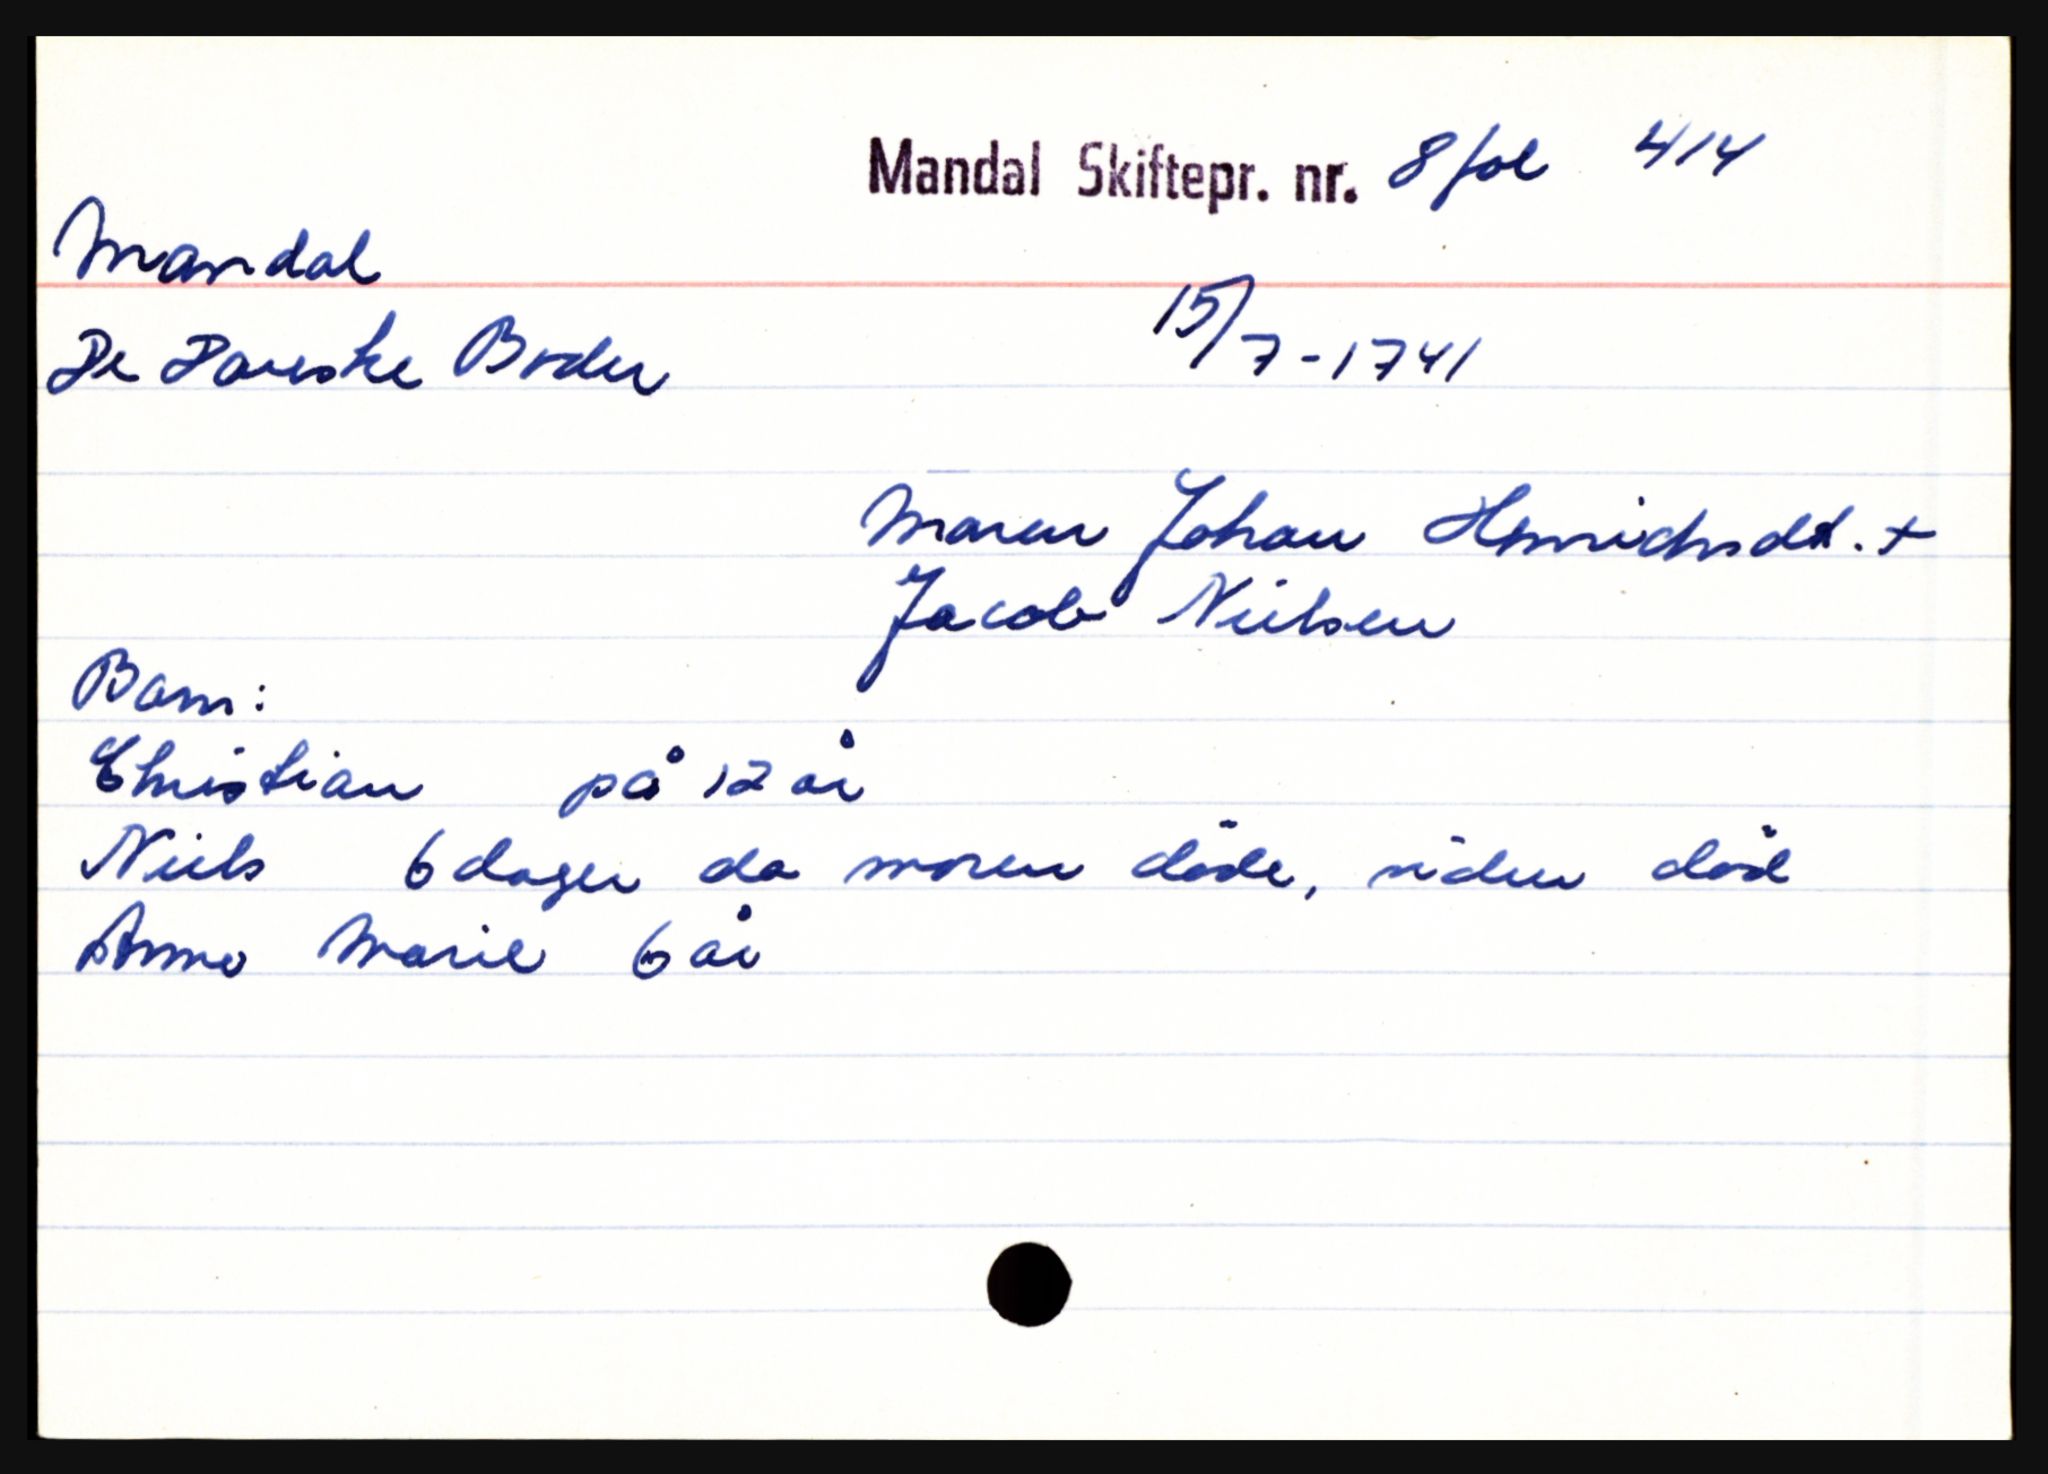 Mandal Skiftepr. nr. 8 fol 414
Mandal
De Danske Boder 15/7-1741
Maren Johan Henrichsdt. +
Jacob Nielsen
Barn:
Christian på 12 år
Niels 6 dager da moren döde, siden död
Anna Marie 6 år